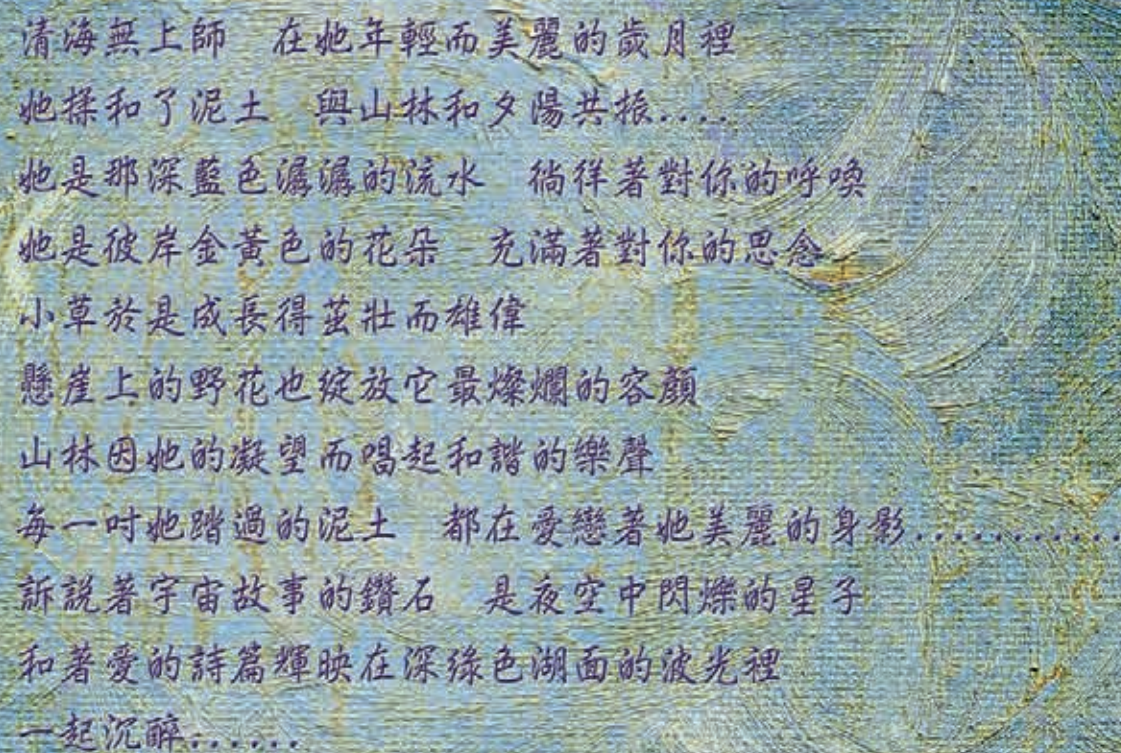 清海無上師　在她年輕而美麗的歲月裡
她揉和了泥土　與山林和夕陽共振....
她是那深藍色潺潺的流水　徜徉著對你的呼喚
她是彼岸金黃色的花朵　充滿著對你的思念
小草於是成長得茁壯而雄偉
懸崖上的野花也綻放它最燦爛的容顏
山林因她的凝望而唱起和諧的樂聲
每一吋她踏過的泥土　都在愛戀著她美麗的身影............
訴說著宇宙故事的鑽石　是夜空中閃爍的星子
和著愛的詩篇輝映在深綠色湖面的波光裡
一起沉醉......